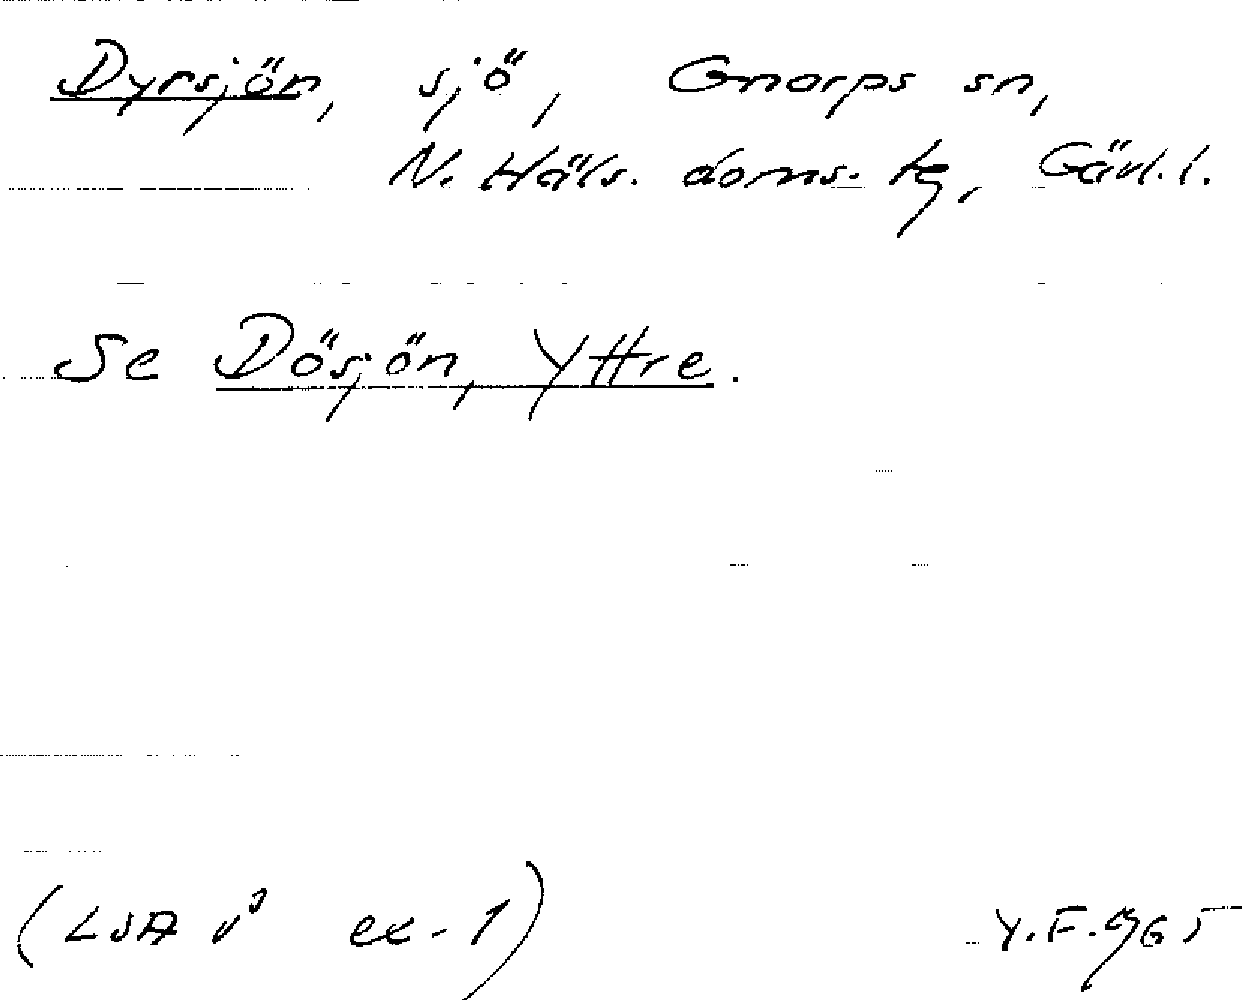 Dyrsjön, sjö, Gnarps sn,
N. Häls. doms. tg, Gävl. l.
Se Dösjön, Yttre.
(LSA ex. 1) Y.F. 1965